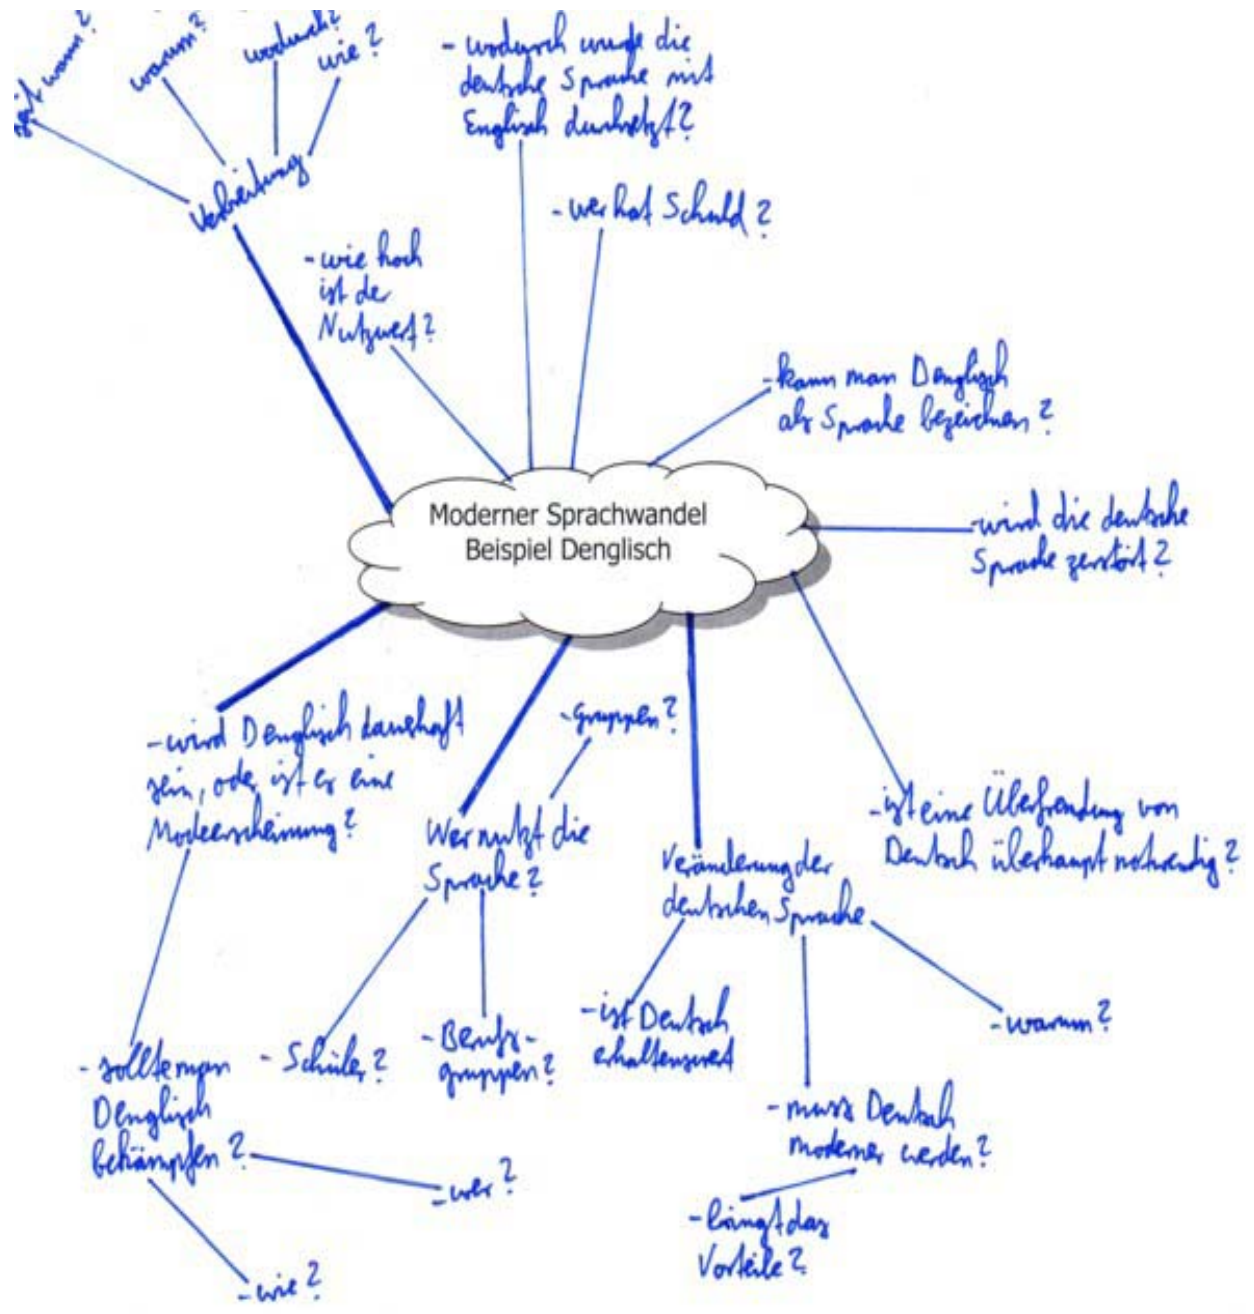 seit wann?
warum?
wodurch?
wie?
Verbreitung
- wodurch wurde die
deutsche Sprache mit
Englisch durchsetzt?
- wer hat Schuld?
- wie hoch
ist der
Nutzwert?
- kann man Denglisch
als Sprache bezeichnen?
Moderner Sprachwandel
Beispiel Denglisch
- wird die deutsche
Sprache zerstört?
- wird Denglisch dauerhaft
sein, oder ist es eine
Modeerscheinung?
- gruppen?
Wer nutzt die
Sprache?
Veränderung der
deutschen Sprache
- ist eine Überfremdung von
Deutsch überhaupt notwendig?
- sollte man
Denglisch
bekämpfen?
- Schüler?
- Berufs-
gruppen?
- ist Deutsch
erhaltenswert
- warum?
- muss Deutsch
moderner werden?
- wer?
- bringt das
Vorteile?
- wie?